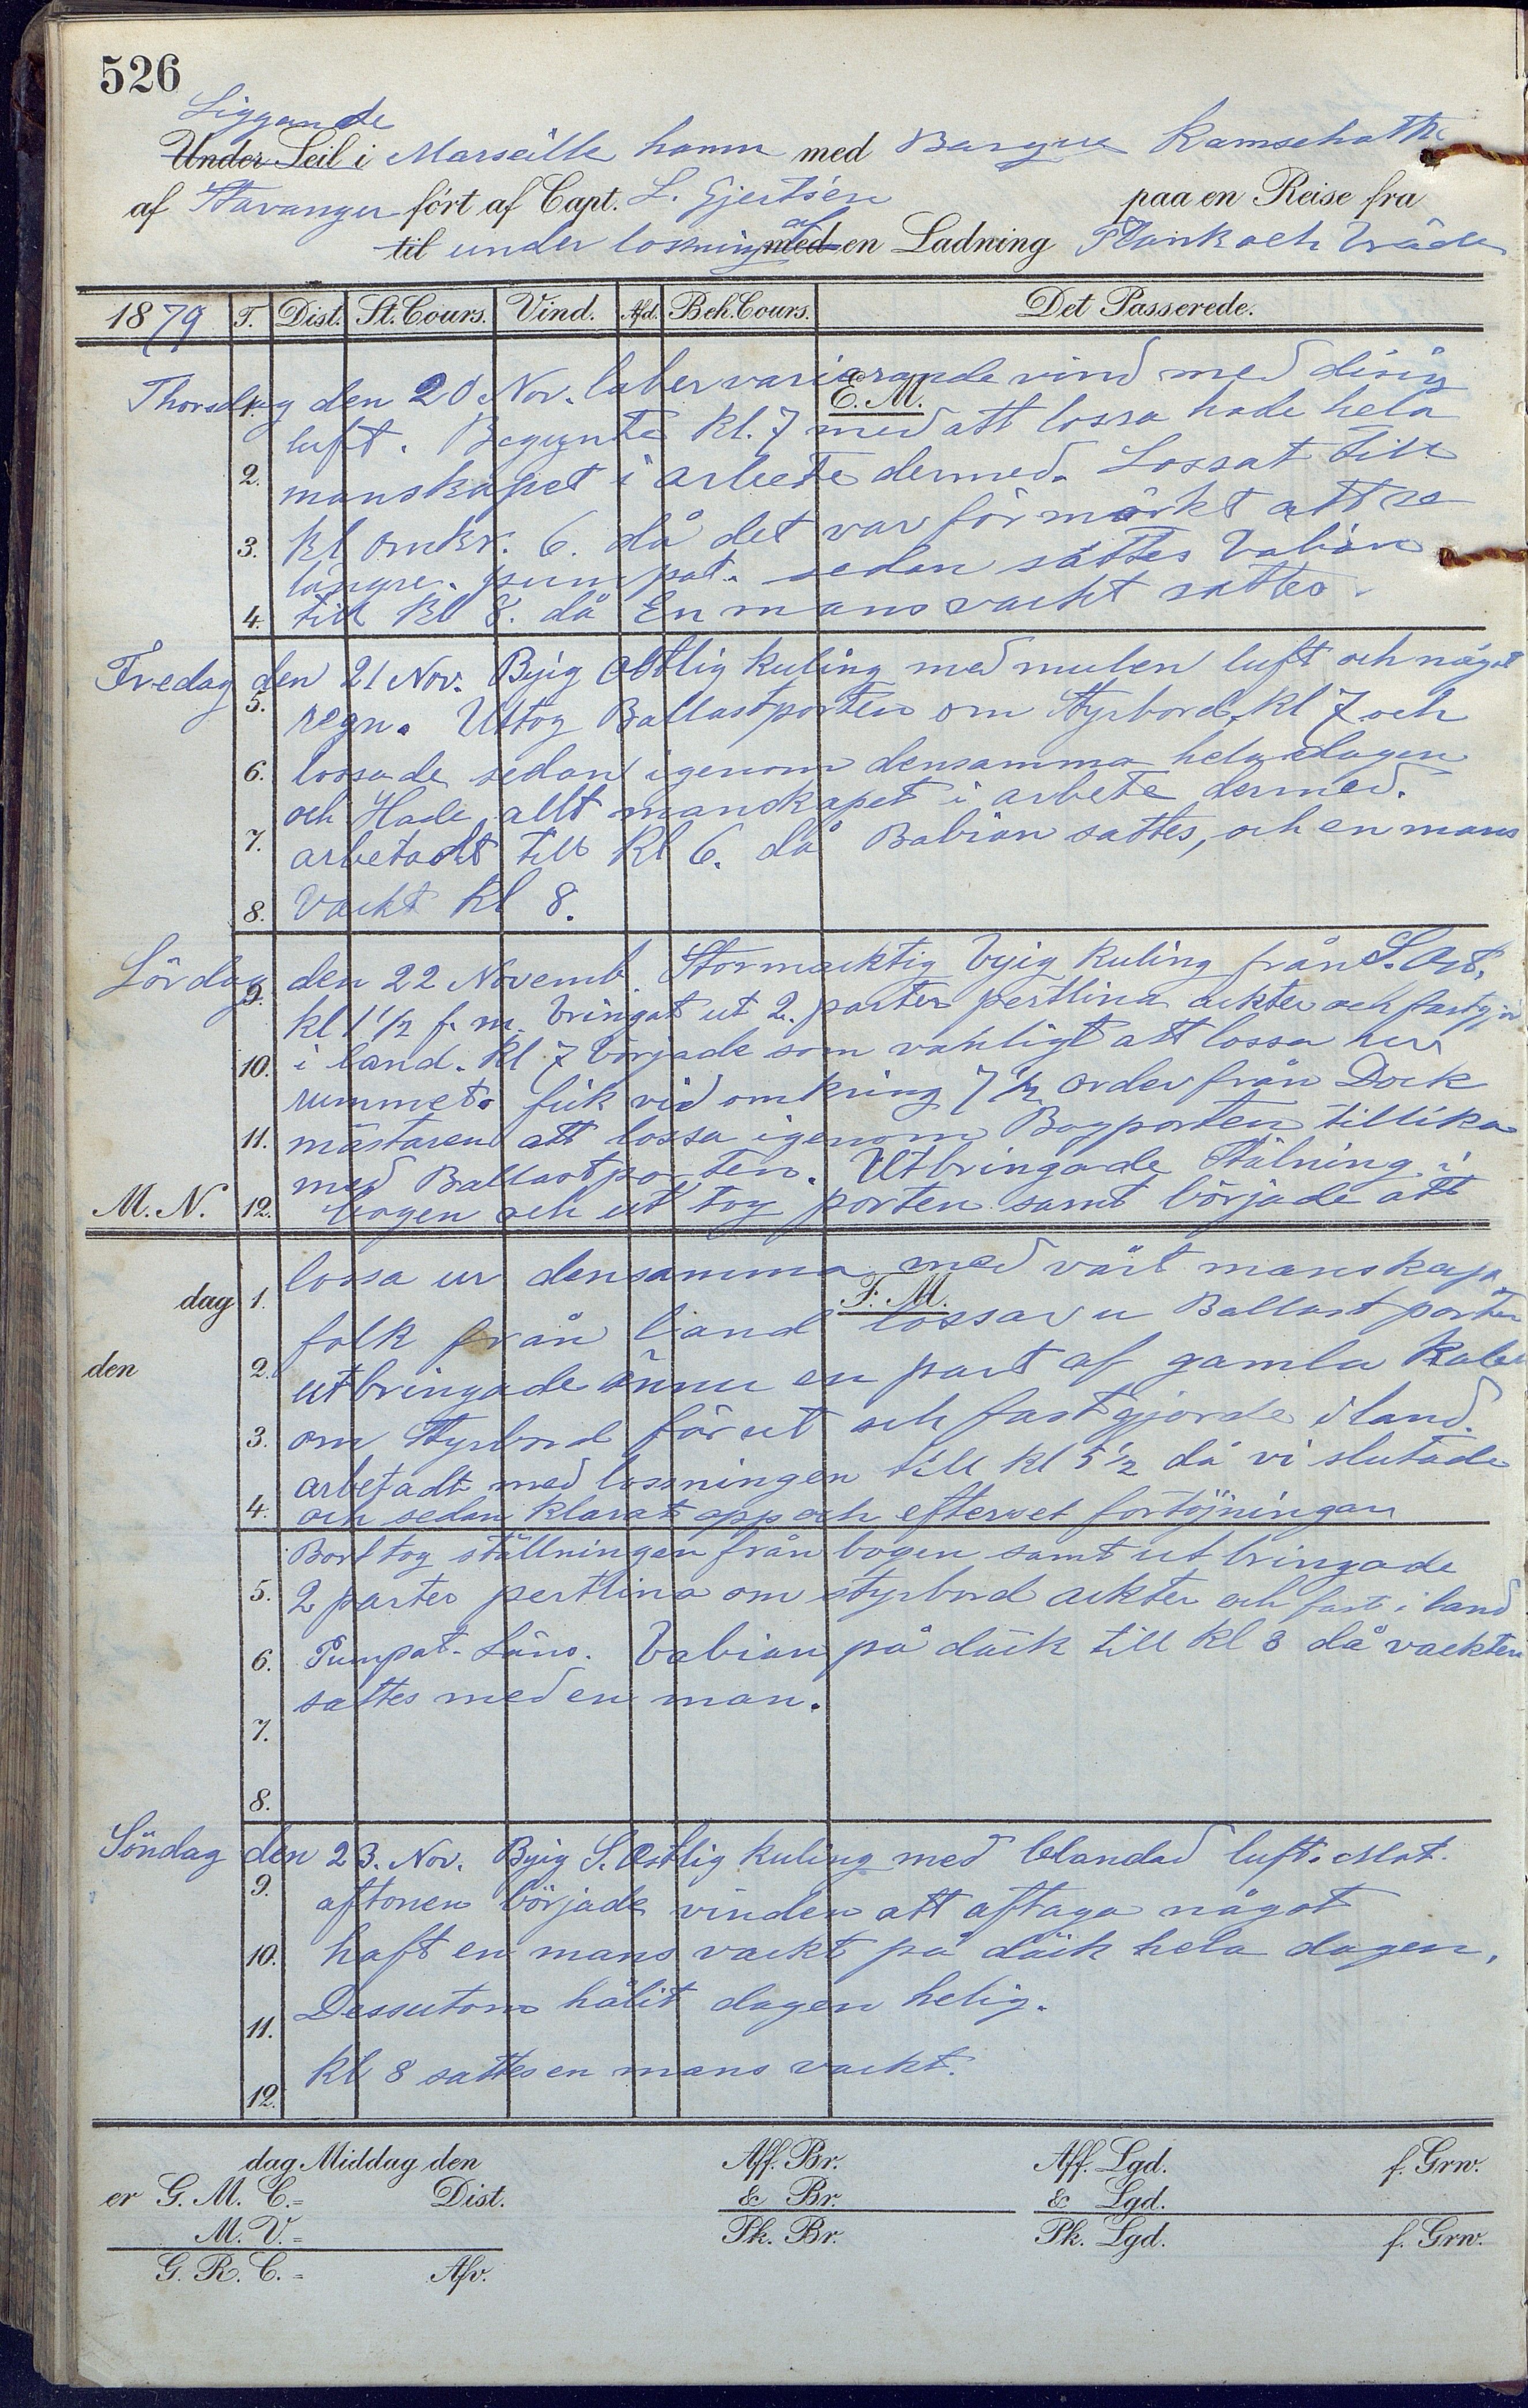 526
Liggande
Under Seil i Marseille hamn med Barque Kamschatka
af Stavanger fört af Capt. L. Gjertsén paa en Reise fra
til under lossning af med en Ladning Plank och Bräder
1879 T. Dist. St. Cours. Vind. Afd. Beh. Cours. Det Passerede.
Thorsdag den 20 Nov. laber varierande vind med disig
E. M.
1.
luft. Begynte Kl. 7 med att lossa hade hela
2. manskapet i arbete dermed. Lossat till
3. Kl omkr. 6. då det var för mörkt att se
längre. pumpat. sedan sattes Babian
4. till Kl 8. då En mans vackt sattes.
Fredag den 21 Nov. Byig Ostlig kuling med mulen luft och något
5. regn. Uttog Ballastporten om Styrbord, Kl 7 och
6. lossade sedan igenom densamma hela dagen
och Hade allt manskapet i arbete dermed.
7. arbetadt till Kl 6. då Babian sattes, och en mans
8. vackt Kl 8.
Lördag den 22 Novemb. Stormacktig byig kuling från S. Ost.
9. kl 1 1/2 f. m. bringat ut 2. parter pertlina ackter och fastgjör
10. i land. Kl 7 började som vahligt att lossa hur
rummet. fick vid omkring 7 1/2 order från Dock
11. mästaren att lossa igenom Bogporten tillika
med Ballastporten. Utbringade Stälning i
M. N. 12. bogen och ut tog porten samt började att
lossa ur densamma med vårt manskap.
dag 1. F. M.
folk från land lossar u Ballast porten
den 2. utbringade ännu en part af gamla Kabel
3. om Styrbord förut och fastgjorde i land.
arbetadt med lossningen till kl 5 1/2 då vi slutade
4. och sedan klarat opp och efterset förtöjningar
Bort tog ställningen från bogen samt utbringade
5. 2 parter pertlina om styrbord ackter och fast i land
6. Pumpat. Läns. Babian på däck till Kl 8 då vackten
sattes med en man.
7.
8.
Söndag den 23. Nov. Byig S. Ostlig kuling med blandad luft. Mot
9. aftonen började vinden att aftaga något
10. haft en mans vackt på däck hela dagen.
11. Dessutom hålit dagen helig.
12. Kl 8 sattes en mans vackt.
dag Middag den Aff. Br. Aff. Lgd. f. Grw.
er G. M. C.= Dist. & Br. & Lgd.
M. V.= Pk. Br. Pk. Lgd. f. Grw.
G. R. C.= Afv.